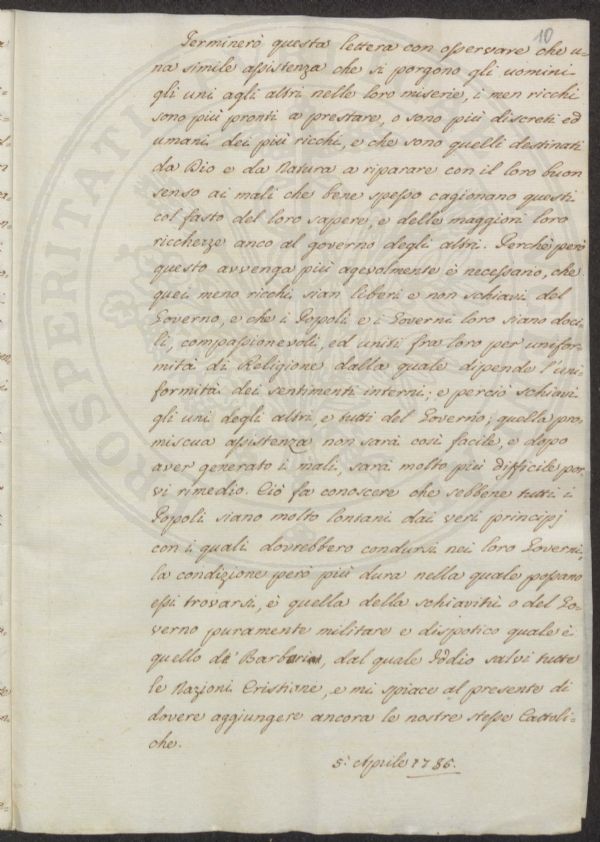 10
Terminerò questa lettera con osservare che u=
na simile assistenza che si porgono gli uomini
gli uni agli altri nelle loro miserie, i men ricchi
sono più pronti a prestare, o sono più discreti ed
umani dei più ricchi, e che sono quelli destinati
da Dio e da Natura a riparare con il loro buon
senso ai mali che bene spesso cagionano questi
col fasto del loro sapere, e delle maggiori loro
ricchezze anco al governo degli altri. Perchè però
questo avvenga più agevolmente è necessario, che
quei meno ricchi sian liberi e non schiavi del
Governo, e che i Popoli e i Governi loro siano doci=
li, compassionevoli, ed uniti fra loro per unifor=
mità di Religione dalla quale dipende l'uni
formità dei sentimenti interni; e perciò schiavi
gli uni degli altri, e tutti del Governo; quella pro=
miscua assistenza non sarà così facile, e dopo
aver generato i mali, sarà molto più difficile por=
vi rimedio. Ciò fa conoscere che sebbene tutti i
Popoli siano molto lontani dai veri principj
con i quali dovrebbero condursi nei loro Governi,
la condizione però più dura nella quale possano
essi trovarsi, è quella della schiavitù o del Go=
verno puramente militare e dispotico quale è
quello di Barbaria, dal quale Iddio salvi tutte
le Nazioni Cristiane, e mi spiace al presente di
dovere aggiungere ancora le nostre stesse Cattoli=
che.
5. Aprile 1786.
PROSPERITATI